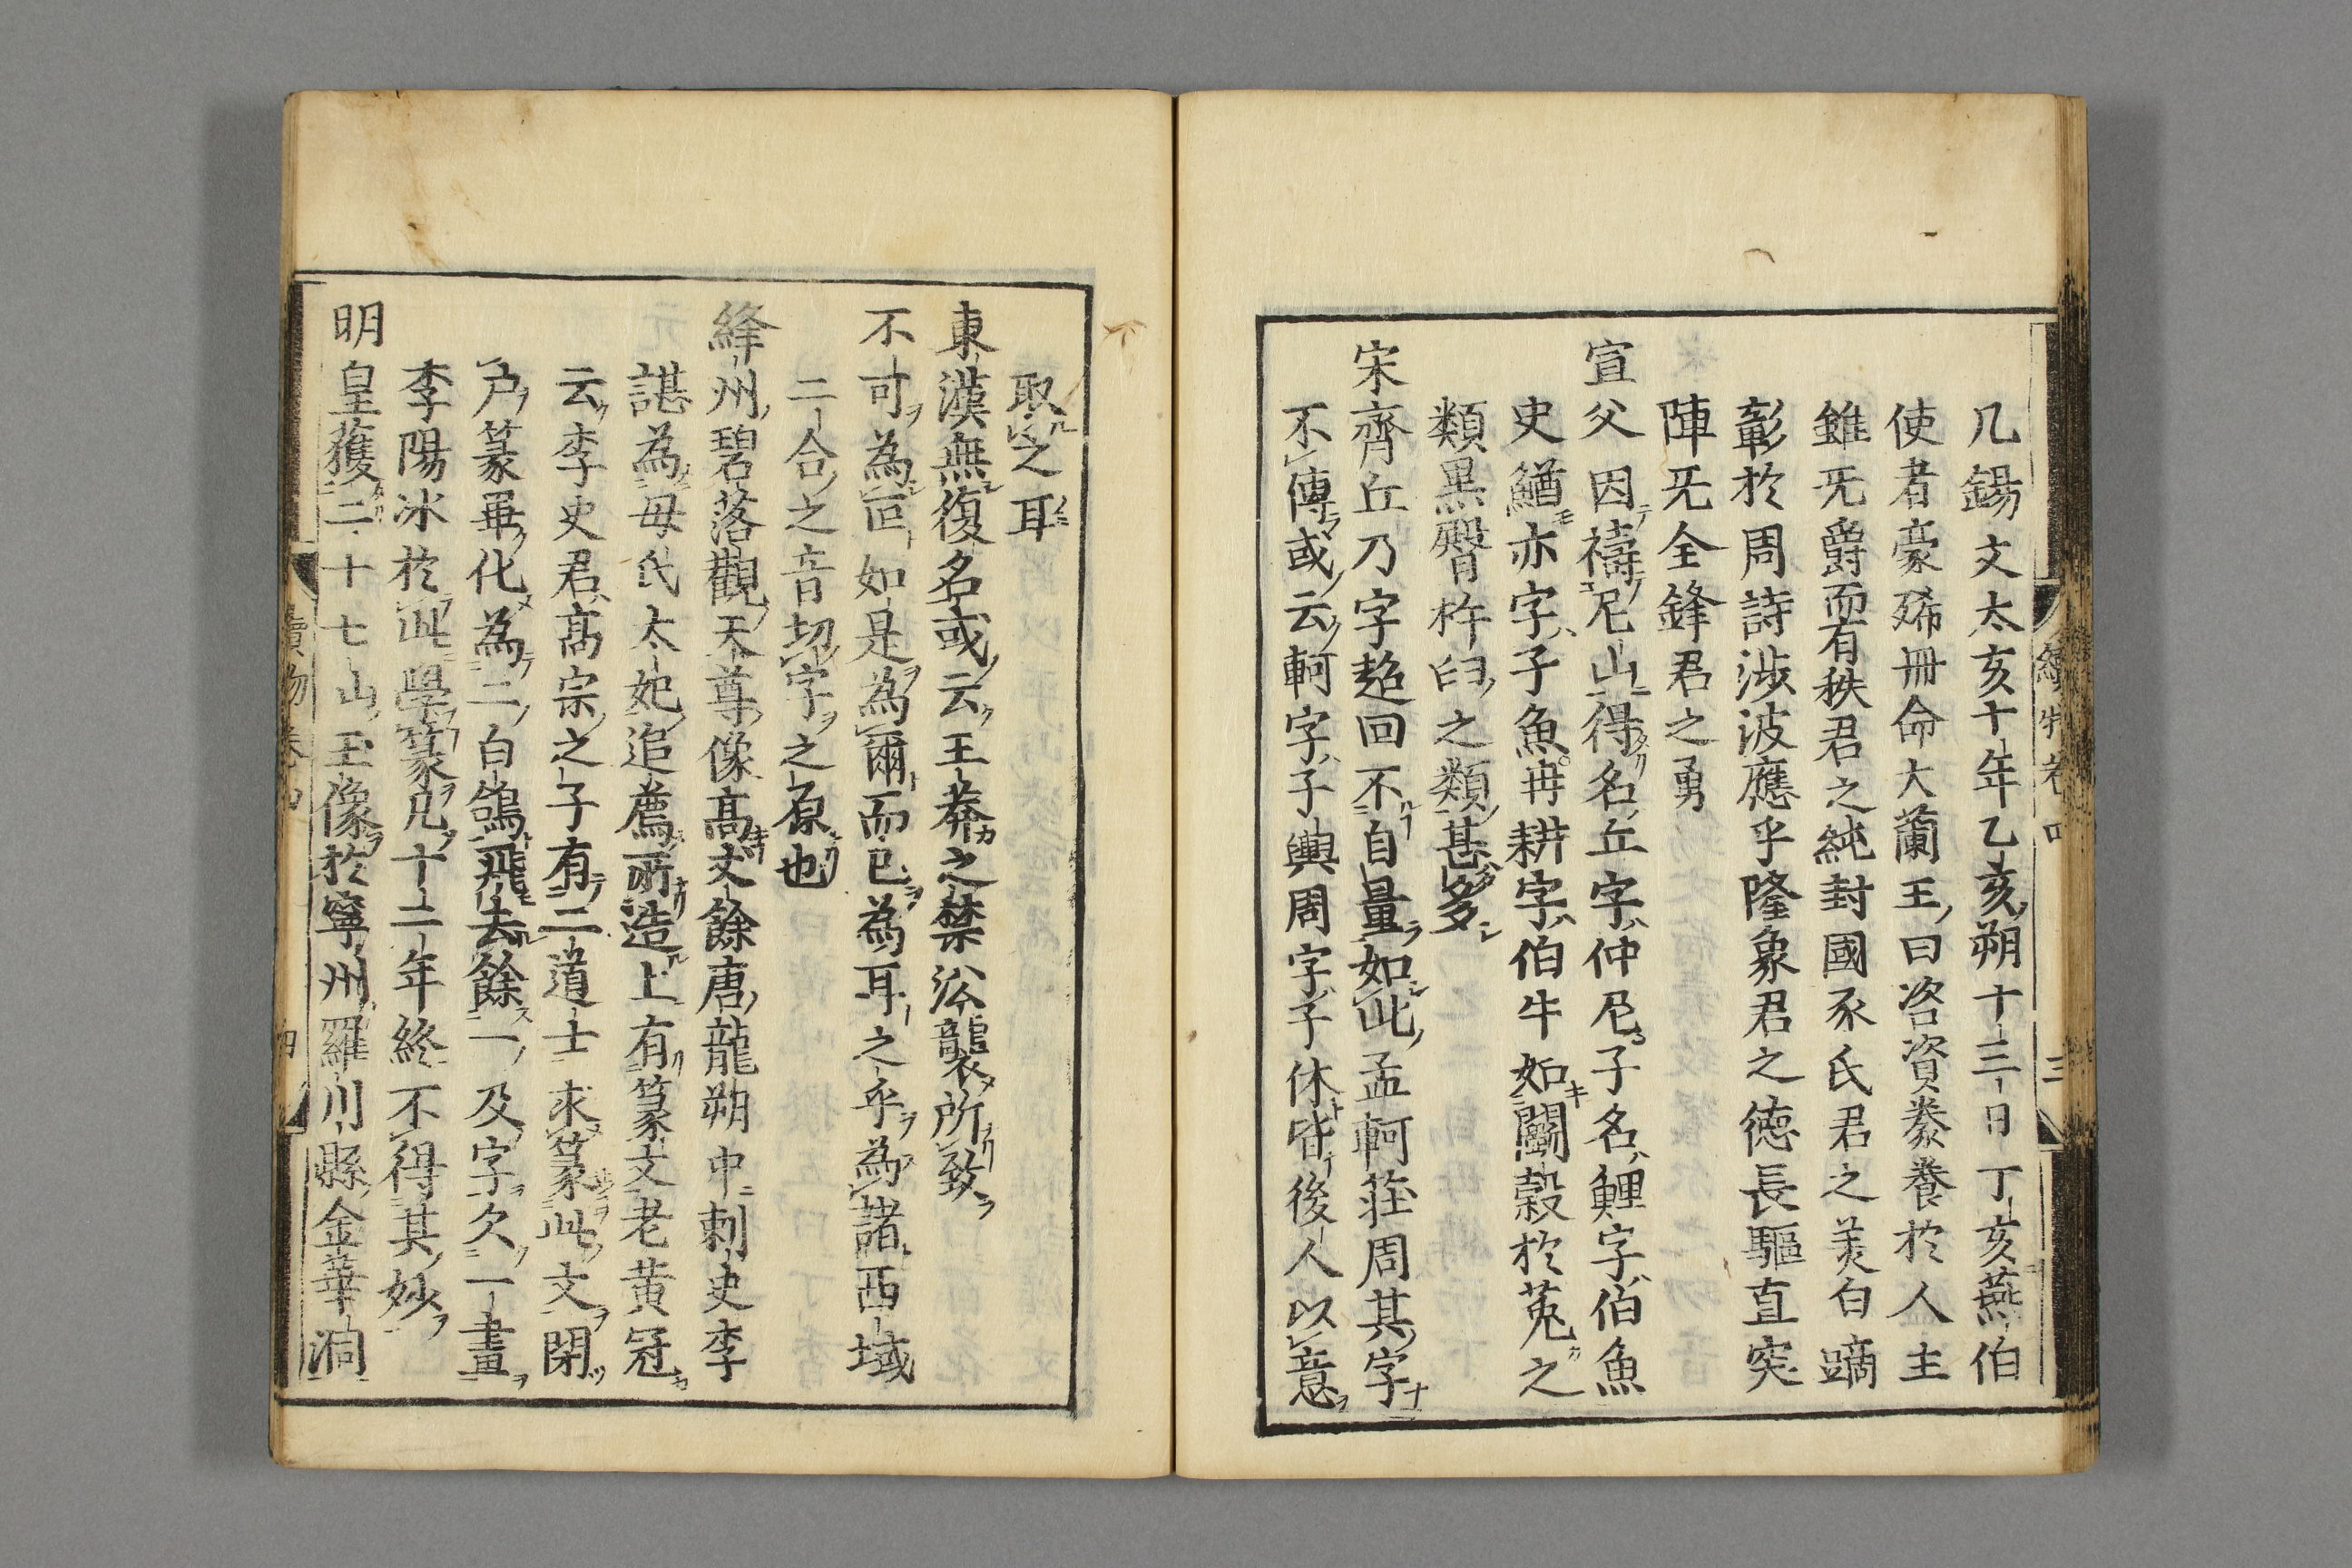 續博物卷四 三
九錫文太亥十年乙亥朔十三日丁亥燕伯
使者豪豨冊命大蘭王曰咨資豢養於人主
雖旡爵而有秩君之純封國豕氏君之美白蹢
彰於周詩涉波應乎隆象君之德長驅直突
陣旡全鋒君之勇
宣父因禱尼山得名丘字仲尼子名鯉字伯魚
史鰌亦字子魚冉耕字伯牛如鬬穀於菟之
類黒臀杵臼之類甚多
宋齊丘乃字超回不自量如此孟軻莊周其字
不傳或云軻字子輿周字子休皆後人以意
取之耳
東漢無復名或云王莽之禁㳂襲所致
不可為叵如是為爾而已為耳之乎為諸西域
二合之音切字之原也
絳州碧落觀天尊像高丈餘唐龍朔中刺史李
諶為母氏太妃追薦所造上有篆文老黄冠
云李史君高宗之子有二道士求篆此文閉
户篆畢化為二白鴿飛去餘一及字欠一畫
李陽冰於此學篆凡十二年終不得其妙
明皇獲二十七山玉像於寧州羅川縣金華洞
續物卷四 四